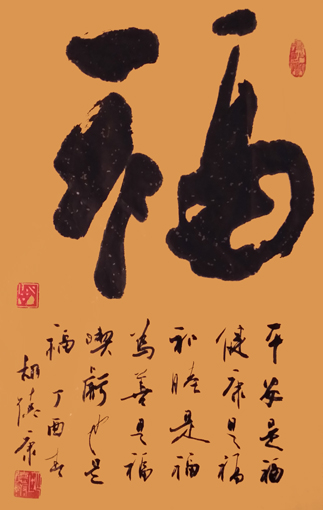 福
平安是福
健康是福
和睦是福
為善是福
喫虧也是
福 丁酉春
胡康